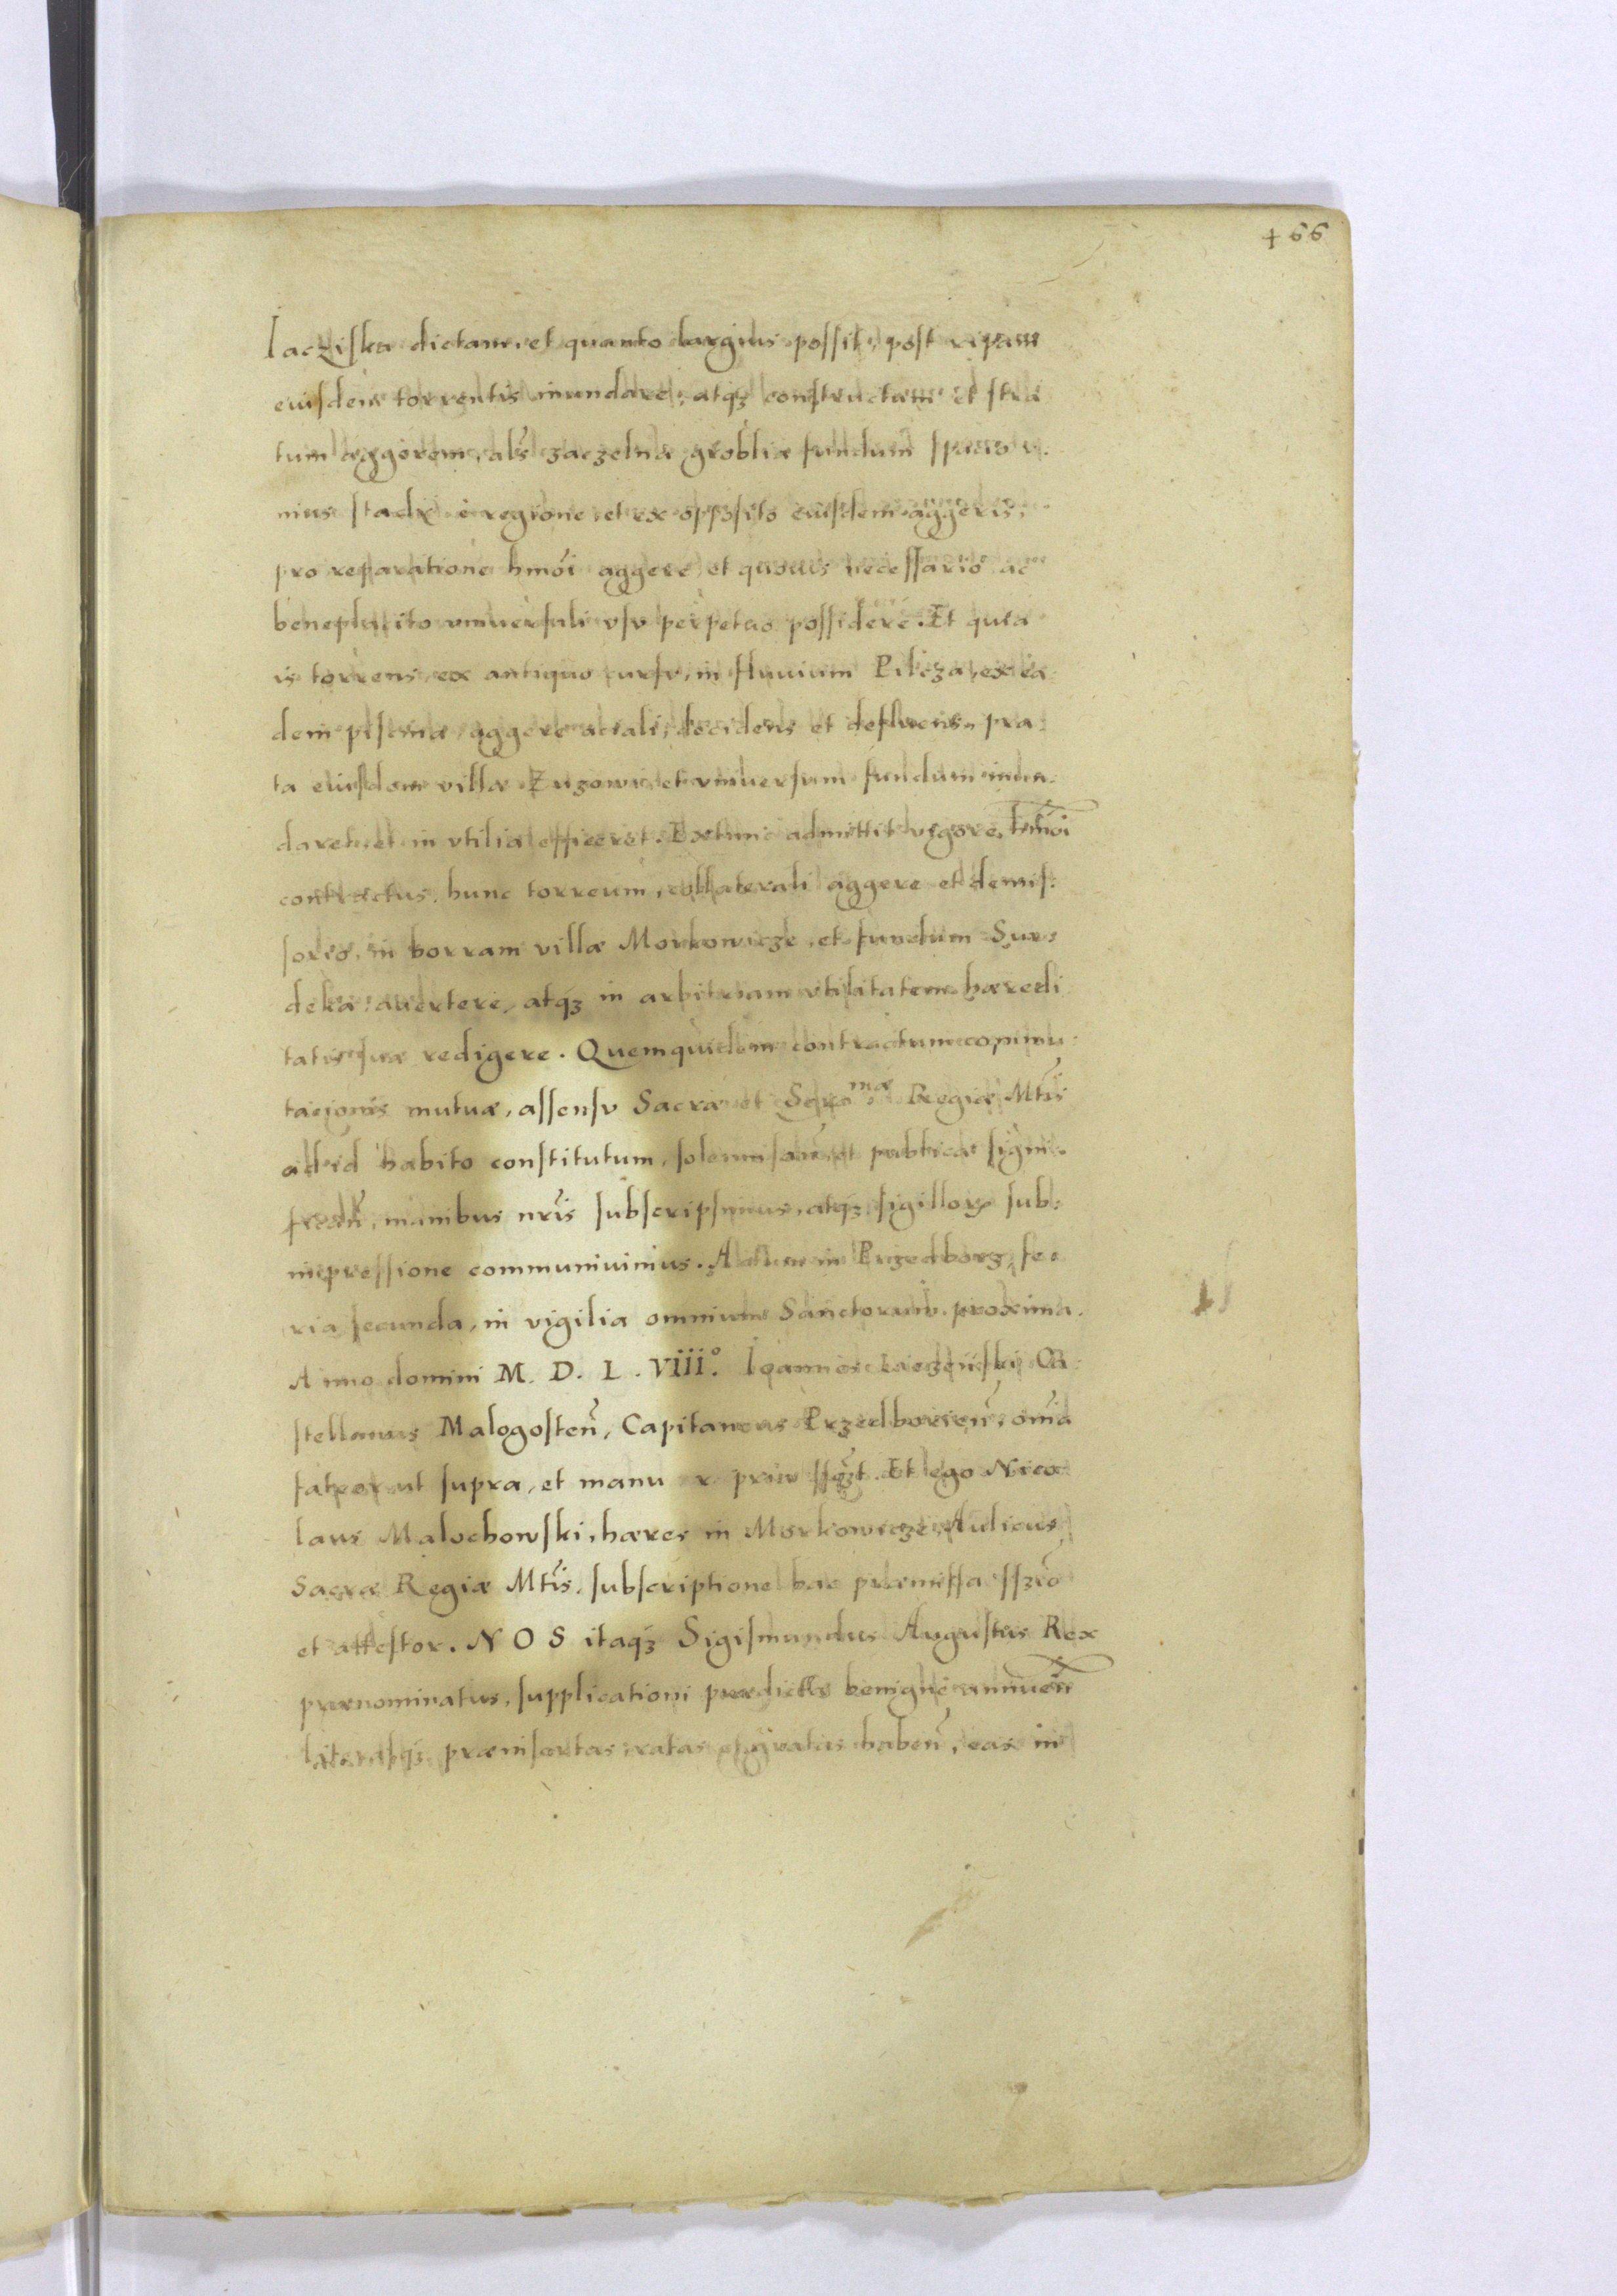 + 66
Iacziska dictam, et quanto largius possit, post ripam
eiusdem torrentis inundare, atqȝ constructam et stra
tum aggerem, als zaczelna groblia fundum spacio v.
nius stadij è regione et ex opposito eiusdem aggeris,
pro reparatione hmõi aggere, et quouis necessario ac
beneplacito vniuersali vsv perpetuo possidere. Et quia
is torrens, ex antiquo cursv, in fluvium Pilcza, ex ea
dem piscina, aggere decidens et defluens, pra
ta eiusdem villæ Zuzowi et vniuersum fundum inun.
daret, et in vtilia efficeret. Extunc admittit vigore, hmõi
contractus, hunc torreum, collaterali aggere et demis:
sorio, in borram villæ Morkowicze, et fundum Sur:
deka, auertere, atqȝ in arbitriam vtilitatem hæredi
tatis suæ redigere. Quemquidem contractum commu:
tacionis mutuæ, assensv Sacræ et Sereᵐᵃᵉ Regiæ Mtis
ad id habito constitutum, et publicæ signi.
manibus nris subscripsimus, atqȝ sigilloꝝ sub:
inpressione communivimus. Actum in Przedborz, fe:
ria secunda, in vigilia omnium Sanctorum proxima.
Anno domini M. D. L. Viii.° Ioannes Ca:
stellanus Malogosteñ, Capitaneus Przedborieñ, omia
fateor ut supra, et manu Et ego Nico
laus Malochowski, hæres in Morkowicze, Aulicus
Sacræ Regiæ Mtis, subscriptione hac præmissa
et attestor. N O S itaqȝ Sigismundus Augustus Rex
prænominatus, supplicationi prædictæ benignè annueñ
literasqȝ præinsertas ratas et gratas habeñ, eas in